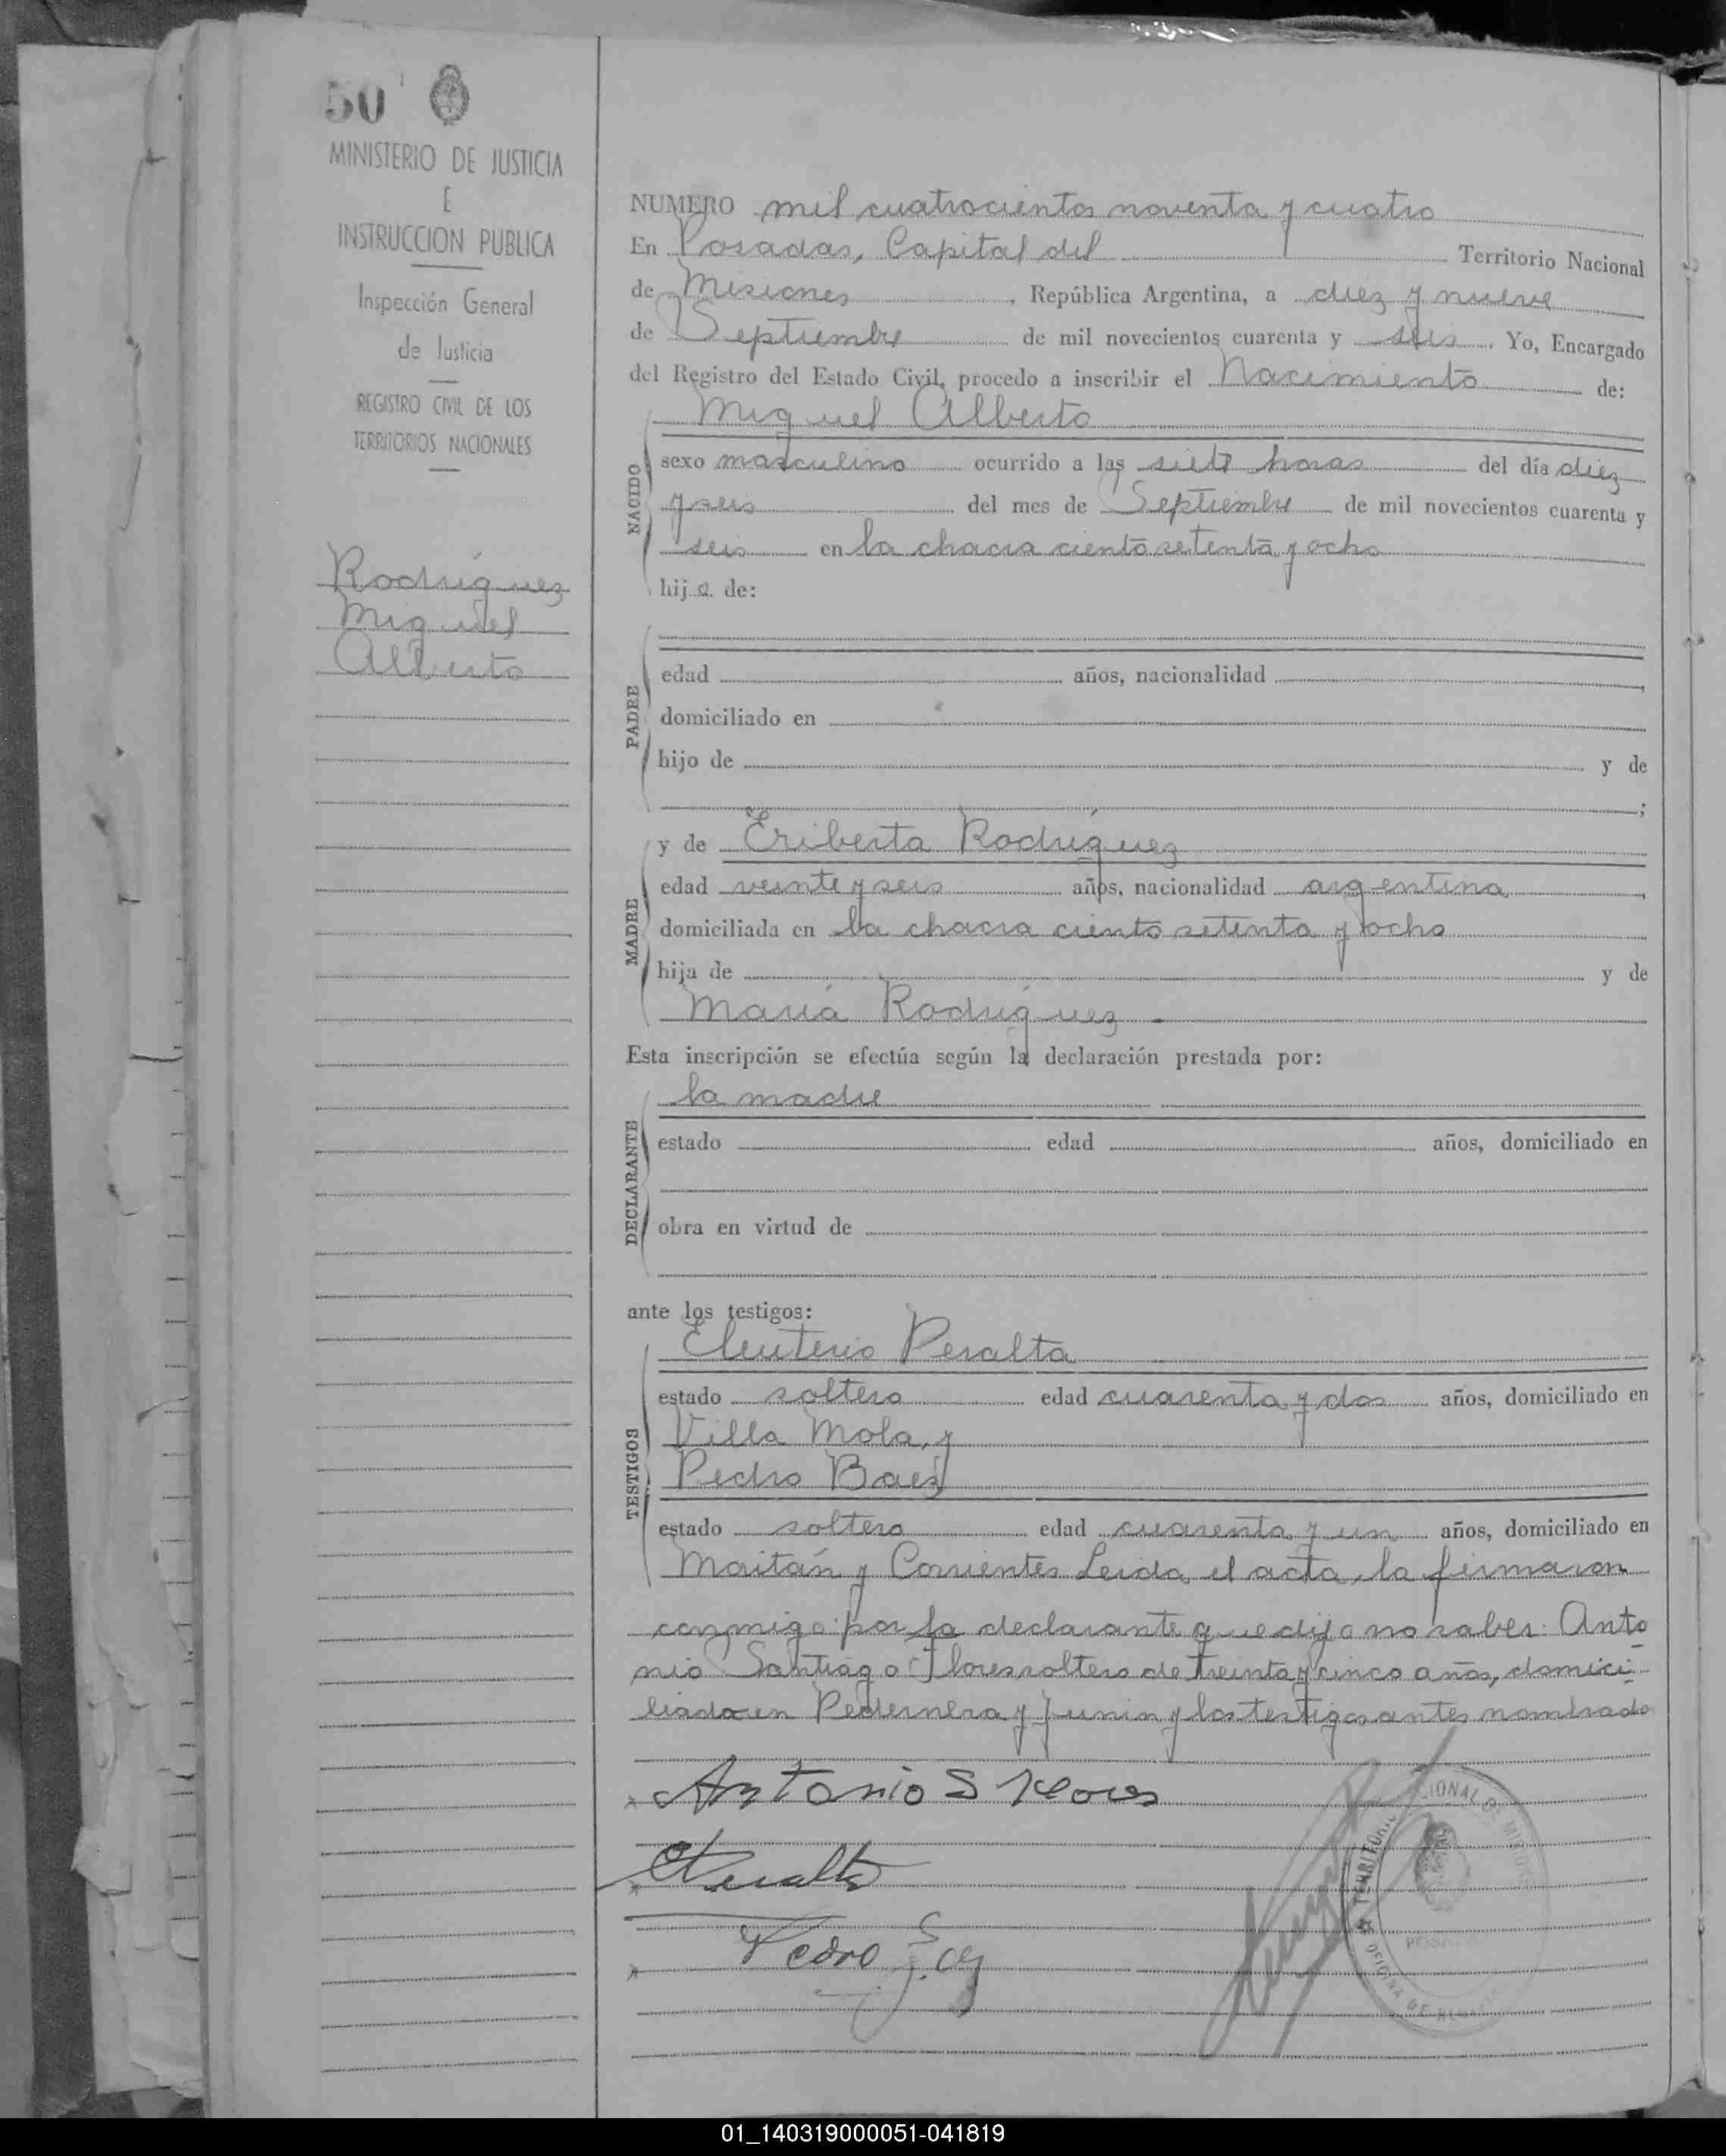 50
MINISTERIO DE JUSTICIA
E
INSTRUCCION PUBLICA
Inspección General
de Justicia
REGISTRO CIVIL DE LOS
TERRITORIOS NACIONALES
Rodríguez
Miguel
Alberto
NUMERO mil cuatrocientos noventa y cuatro
En Posadas, Capital del Territorio Nacional
de Misiones, República Argentina, a diez y nueve
de Septiembre de mil novecientos cuarenta y seis. Yo, Encargado
del Registro del Estado Civil, procedo a inscribir el Nacimiento de:
Miguel Alberto
NACIDO
sexo masculino ocurrido a las siete horas del día diez
y seis del mes de Septiembre de mil novecientos cuarenta y
seis en la chacra ciento setenta y ocho
hijo de:
PADRE
edad años, nacionalidad ,
domiciliado en
hijo de y de
;
MADRE
y de Eriberta Rodríguez
edad veinte y seis años, nacionalidad argentina,
domiciliada en la chacra ciento setenta y ocho
hija de y de
María Rodríguez.
Esta inscripción se efectúa según la declaración prestada por:
DECLARANTE
la madre
estado edad años, domiciliado en
obra en virtud de
ante los testigos:
TESTIGOS
Eleuterio Peralta
estado soltero edad cuarenta y dos años, domiciliado en
Villa Mola, y
Pedro Baez
estado soltero edad cuarenta y un años, domiciliado en
Maitán y Corrientes Leida el acta, la firmaron
conmigo por la declarante que dijo no saber: Anto
nio Santiago Flores soltero de treinta y cinco años, domici
liado en Pedernera y Junin y los testigos antes nombrado
Antonio S Flores
Peralta
Pedro
TERRITORIO NACIONAL DE MISIONES
POSADAS
OFICINA DE
01_140319000051-041819